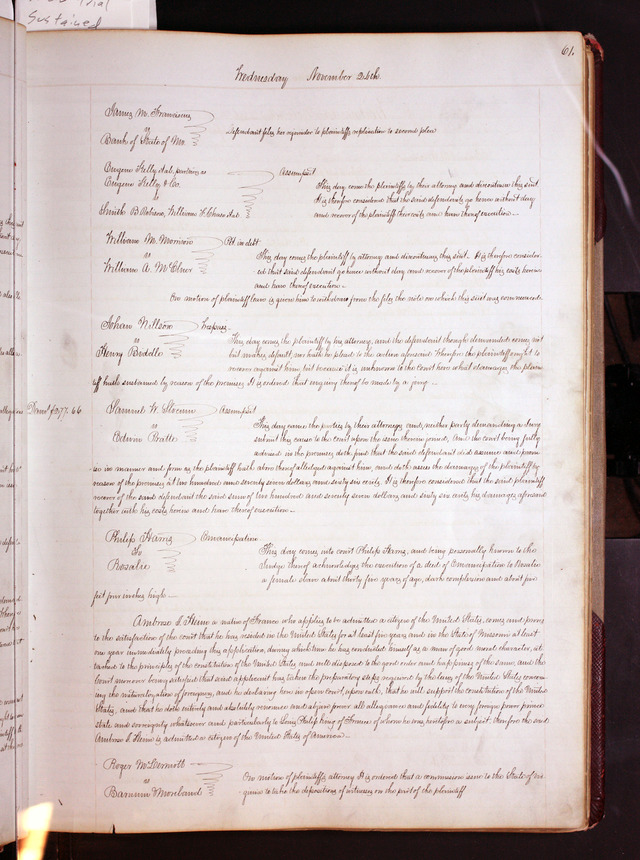 Trial
Sustained
61.
Wednesday November 24th.
James M. Franciscus
vs
Bank of State of Mo
Defendant files her rejoinder to plaintiffs replication to second plea
Eugene Kelly & al, partners as
Eugene Kelly & Co.
vs
Smith B. William & al
Assumpsit
This day come the plaintiffs by their attorney and discontinue this suit
It is therefore considered that the said defendants go hence without day
and recover of the plaintiffs their costs and have thereof execution—
William M. Morrison
vs
William A. McElner
Ptt in debt
This day comes the plaintiff by attorney and discontinues this suit. It is therefore consider-
ed that said defendant go hence without day and recover of the plaintiff his costs herein
and have thereof execution—
On motion of plaintiff leave is given him to withdraw from the files the note on which this suit was commenced.
Johan Nillson
vs
Henry Biddle
Trespass
This day comes the plaintiff by his attorney, and the defendant though demanded comes not
but makes default, nor hath he plead to the action aforesaid Wherefore the plaintiff ought to
recover against him, but because it is unknown to the Court here what damages the plain-
tiff hath sustained by reason of the premises, It is ordered that enquiry thereof be made by a jury—
Damd $277.66
Samuel W.
vs
Edwin Battle
Assumpsit
This day come the parties by their attorneys and neither party demanding a jury
submit this cause to the court upon the issue herein joined, and the court being fully
advised in the premises doth find that the said defendant did assume and promise
in manner and form as the plaintiff hath above thereof alleged against him, and doth assess the damages of the plaintiff by
reason of the premises at two hundred and seventy seven dollars and sixty six cents. It is therefore considered that the said plaintiff
recover of the said defendant the said sum of two hundred and seventy seven dollars and sixty six cents his damages aforesaid
together with his costs herein and have thereof execution—
Philip Harris
To
Rosalie
Emancipation
This day comes into court Philip Harris, and being personally known to the
Judge thereof acknowledges the execution of a deed of Emancipation to Rosalie
a female slave about thirty five years of age, dark complexion and about five
feet four inches high—
Ambrose S. a native of France who applies to be admitted a citizen of the United States, comes and proves
to the satisfaction of the court that he has resided in the United States for at least five years and in the State of Missouri at least
one year immediately preceding this application, during which time he has conducted himself as a man of good moral character, at-
tached to the principles of the constitution of the United States and well disposed to the good order and happiness of the same, and the
Court moreover being satisfied that said applicant has taken the preparatory steps required by the laws of the United States concern-
ing the naturalization of foreigners, and he declaring here in open court, upon oath, that he will support the constitution of the United
States, and that he doth entirely and absolutely renounce and abjure forever all allegiance and fidelity to every foreign power prince
state and sovereignty whatsoever and particularly to Louis Philip King of France of whom he was heretofore a subject. Therefore the said
Ambrose S. is admitted a citizen of the United States of America—
Roger McDermott
vs
Barnum & Moreland
On motion of plaintiffs attorney It is ordered that a commission issue to the State of Vir-
ginia to take the depositions of witnesses on the part of the plaintiff